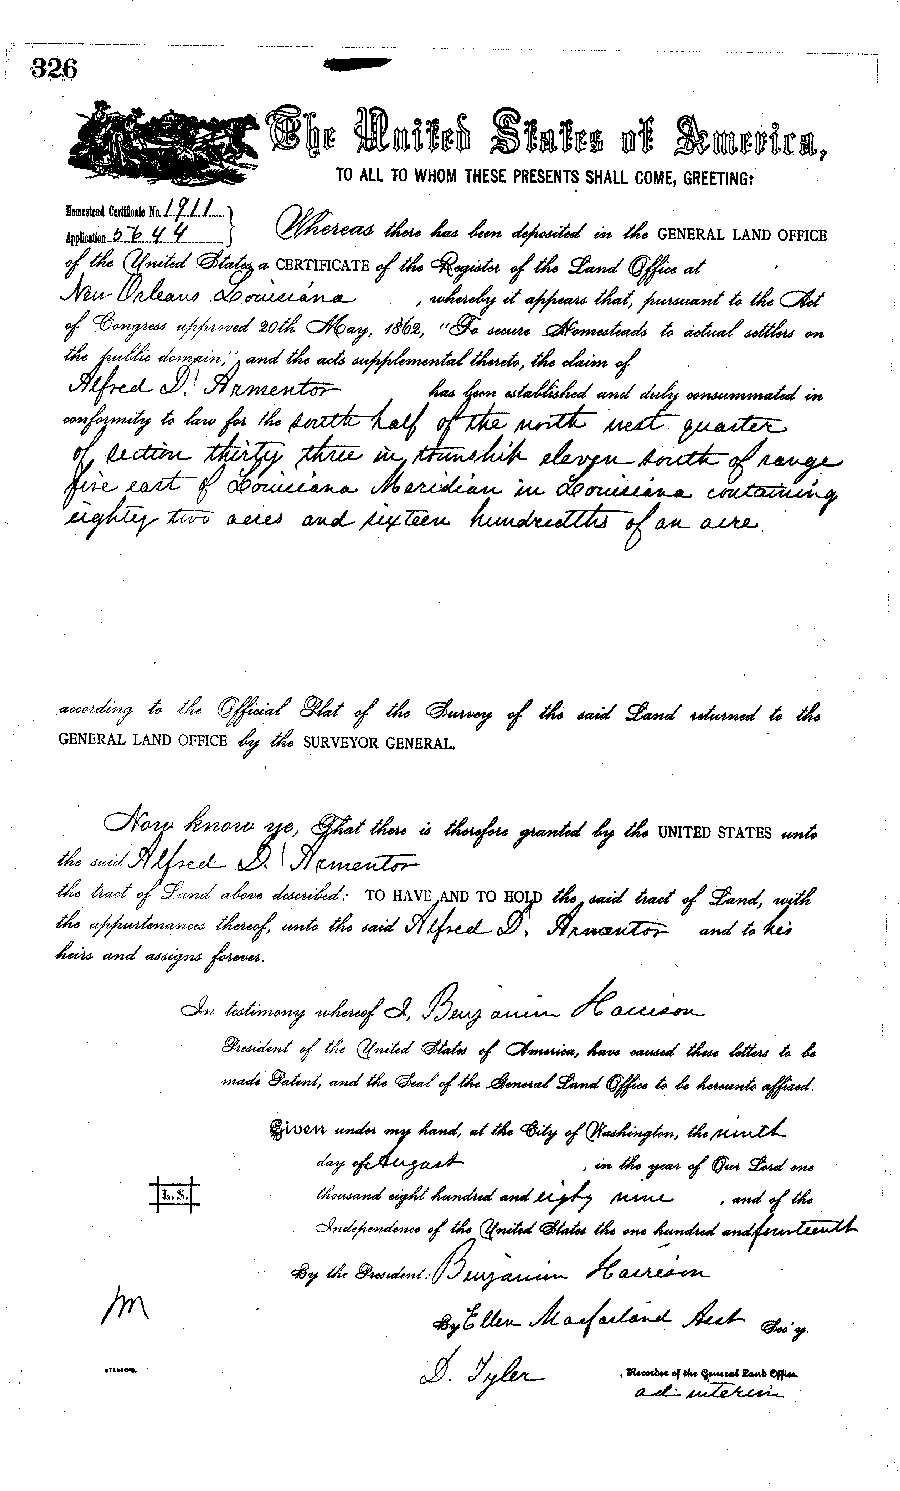 326
The United States of America,
TO ALL TO WHOM THESE PRESENTS SHALL COME, GREETING:
Homestead Certificate No. 1911
Application 5644
Whereas there has been deposited in the GENERAL LAND OFFICE
of the United States a CERTIFICATE of the Register of the Land Office at
New Orleans Louisiana, whereby it appears that, pursuant to the Act
of Congress approved 20th May, 1862, "To secure Homesteads to actual settlers on
the public domain," and the acts supplemental thereto, the claim of
Alfred D. Armentor has been established and duly consummated in
conformity to law for the south half of the north west quarter
of section thirty three in township eleven south of range
five east of Louisiana Meridian in Louisiana containing
eighty two acres and sixteen hundredths of an acre
according to the Official Plat of the Survey of the said Land returned to the
GENERAL LAND OFFICE by the SURVEYOR GENERAL.
Now know ye, That there is therefore granted by the UNITED STATES unto
the said Alfred D. Armentor
the tract of Land above described: TO HAVE AND TO HOLD the said tract of Land, with
the appurtenances thereof, unto the said Alfred D. Armentor and to his
heirs and assigns forever.
In testimony whereof I, Benjamin Harrison
President of the United States of America, have caused these letters to be
made Patent, and the Seal of the General Land Office to be hereunto affixed.
Given under my hand, at the City of Washington, the ninth
day of August, in the year of Our Lord one
thousand eight hundred and eighty nine, and of the
Independence of the United States the one hundred and fourteenth
L. S.
By the President: Benjamin Harrison
M
By Ellen Macfarland Asst Sec'y.
D. Tyler, Recorder of the General Land Office
ad interim